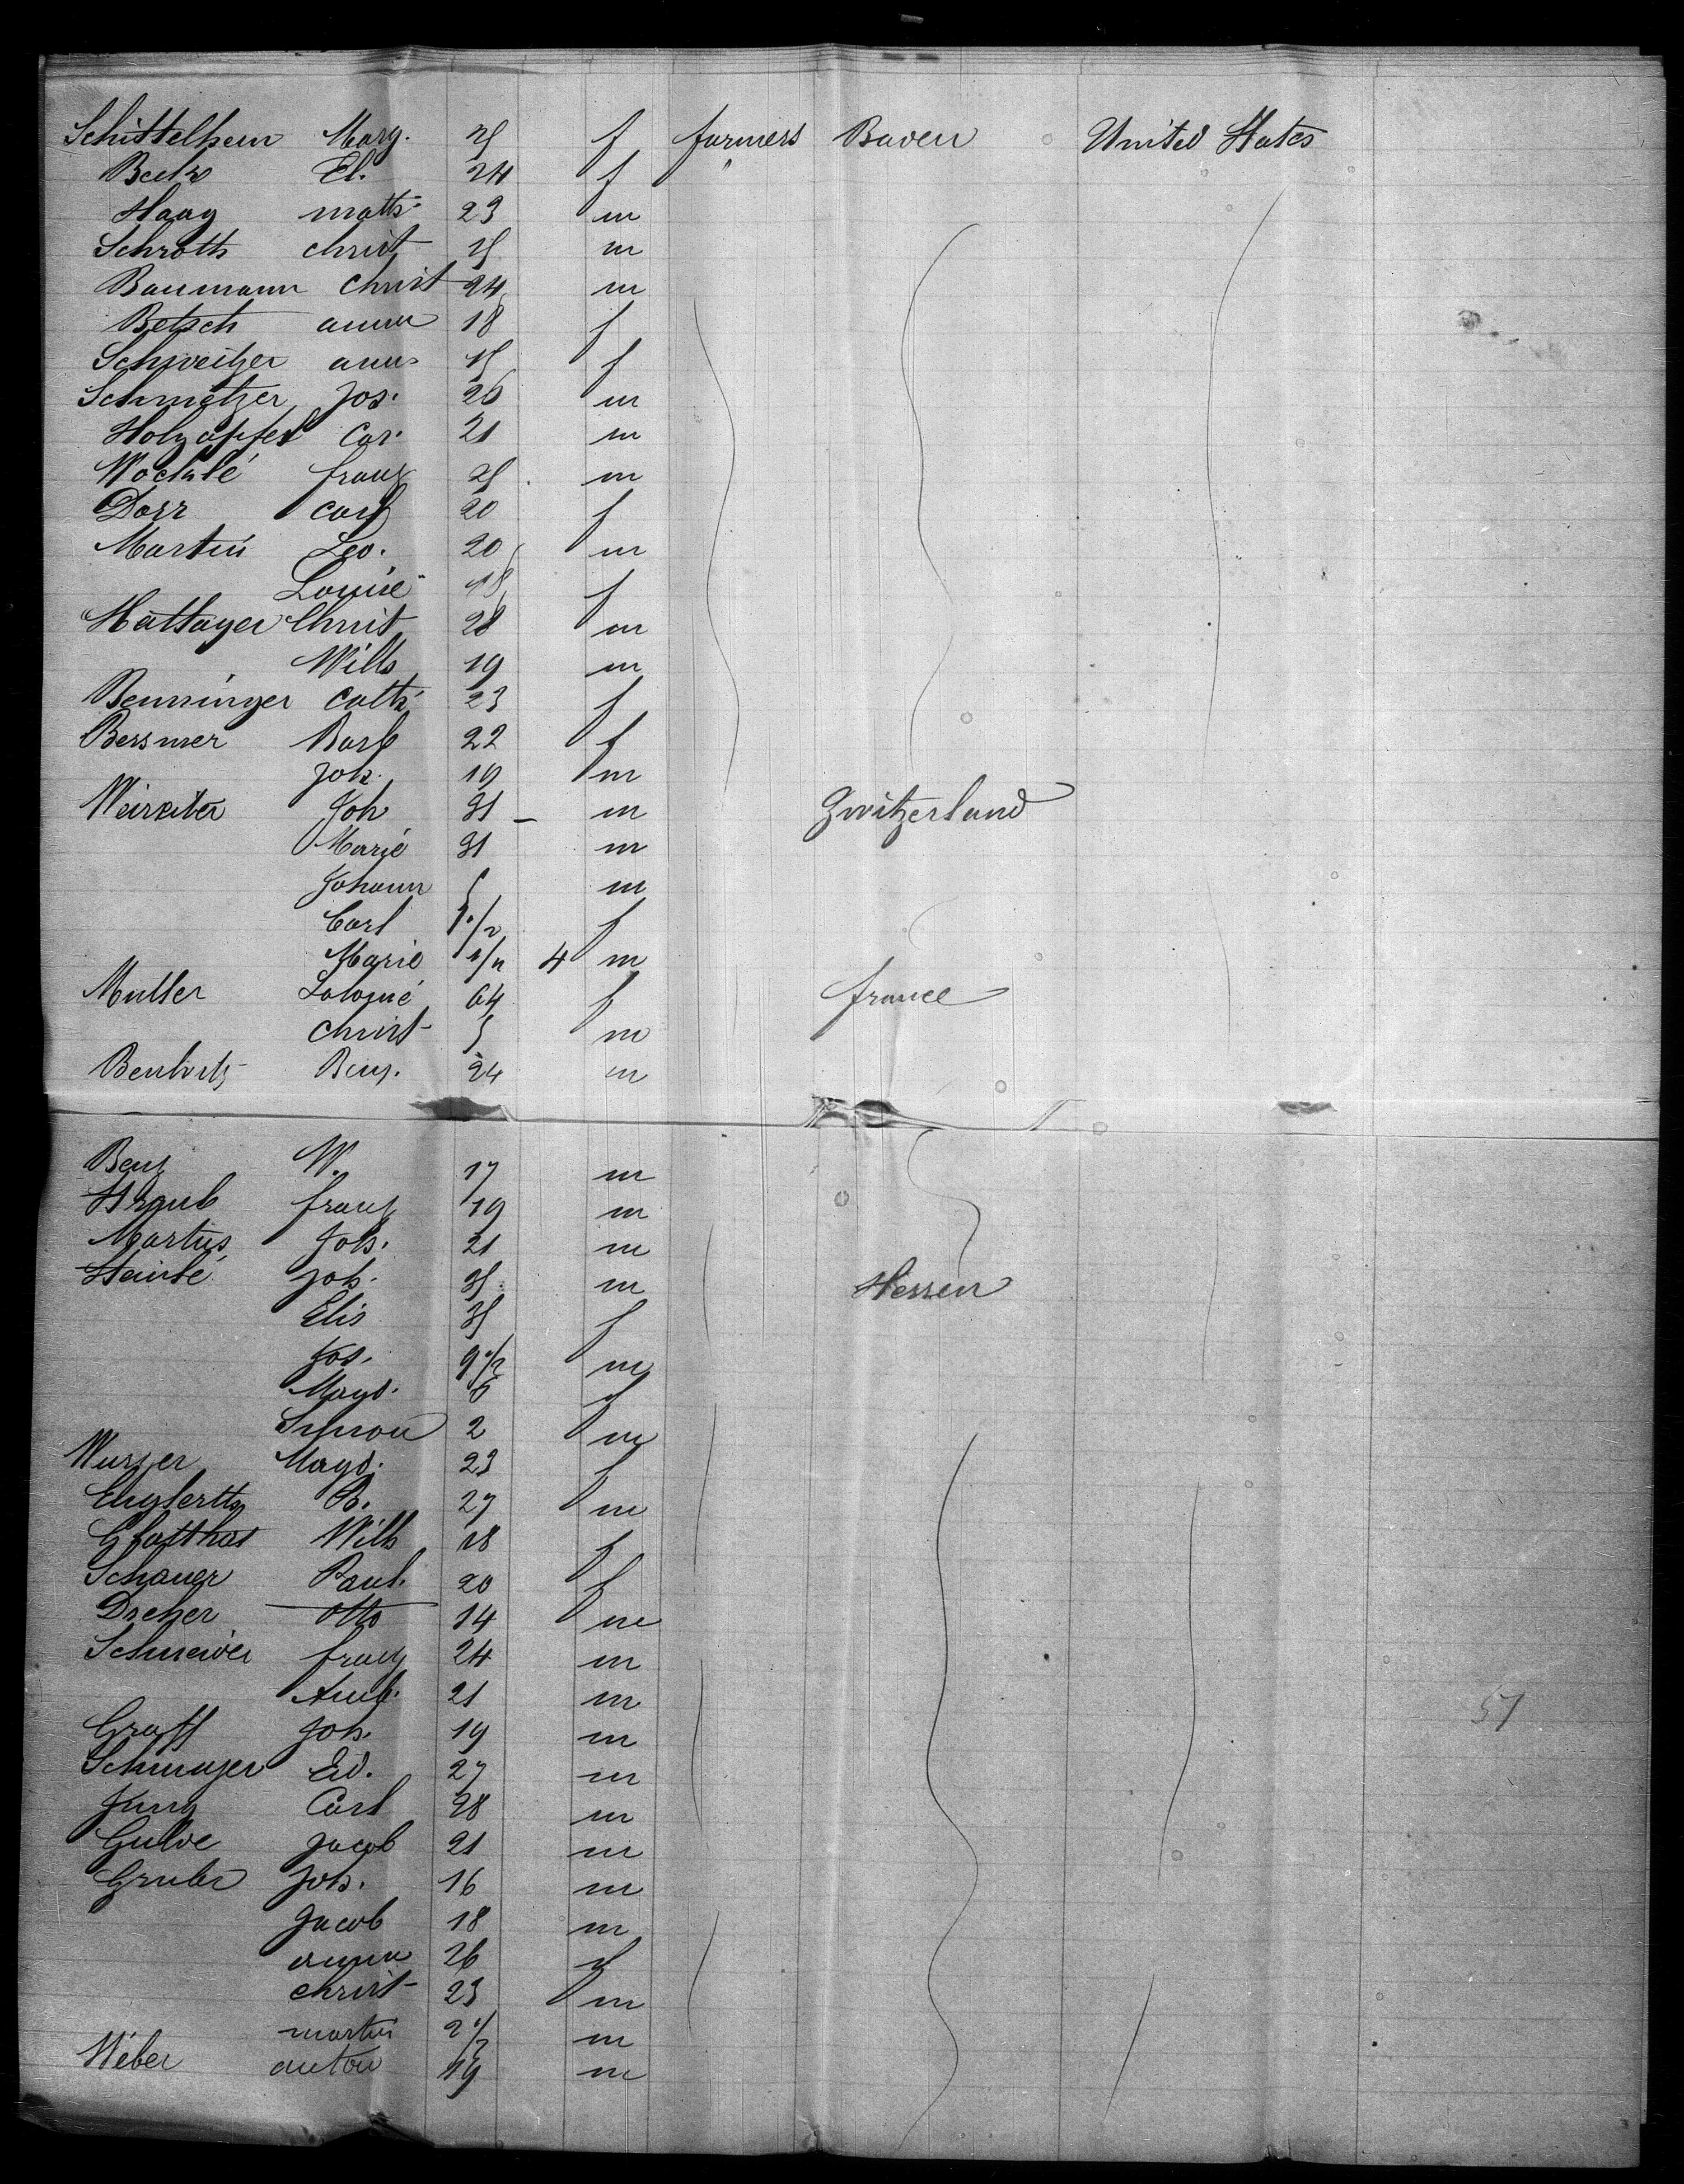 Schittelhem Marg. 25 f farmers Baden United States
Beck El. 24 f "
Haag Matth 23 m
Schroth Christ 25 m
Baumann Christ 24 m
Betsch Anna 18 f
Schweitzer Anna 15 f
Schmetzer Jos. 26 m
Holzapfel Car. 21 m
Wöchslé franz 25 m
Dorr Carl 20 f
Martin Leo. 20 m
Louise 18 f
Hattayer Christ 28 m
Wilh 19 m
Benninger Cath 23 f
Bessmer Barb 22 f
Joh. 19 m
Weirziter Joh 31 – m Zwitzerland
Marie 31 m
Johann 5 m
Carl f
Marie 4 m
Muller Salomé 64 f france
Christ 5 m
Benj. 24 m
Benz W. 17 m
Straub franz 19 m
Martin Joh. 21 m
Stainlé Joh. 35 m Hessen
Elis 35 f
Jos. 9 1/2 m
Magd. 6 f
Simon 2 m
Wurzer Magd. 23 f
Englerth B. 27 m
Glatthas Wilh 18 f
Schauer Paul. 20 f
Dreher Otto 14 m
Schneider franz 24 m
Amb. 21 m
Graff Joh. 19 m
Schmayer Ed. 27 m
Jung Carl 28 m
Gulde Jacob 21 m
Gruber Joh. 16 m
Jacob 18 m
Anna 26 f
Christ 23 m
Martin 2 1/2 m
Weber Anton 19 m
51